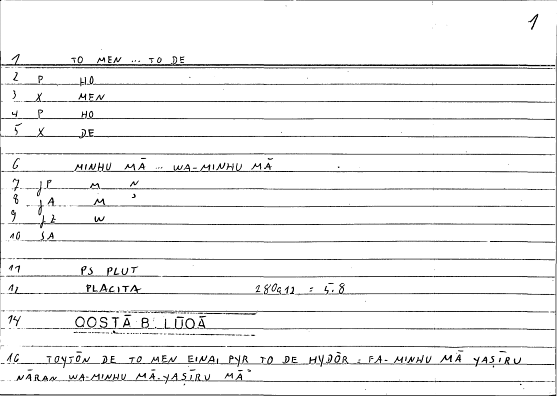 1
1 TO MEN ... TO DE
2 P HO
3 X MEN
4 P HO
5 X DE
6 MINHU MĀ ... WA-MINHU MĀ
7 JP M N
8 JA M ʾ
9 JZ W
10 SA
11 PS PLUT
12 PLACITA 280a12 = 5.8
14 QOSṬĀ B. LŪQĀ
16 TOYTŌN DE TO MEN EINAI PYR TO DE HYDŌR : FA-MINHU MĀ YAṢĪRU
NĀRAN WA-MINHU MĀ-YAṢĪRU MĀʾ